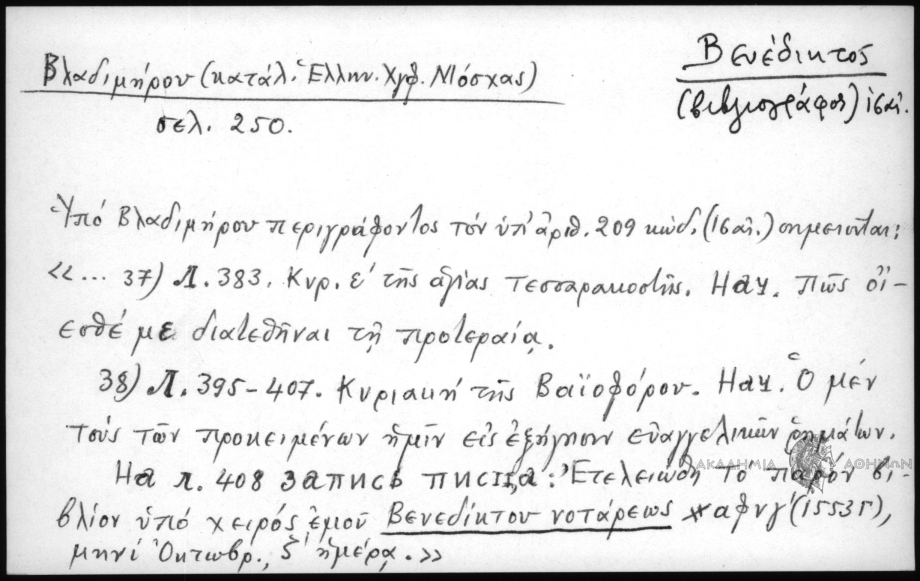 Βλαδιμήρου (κατάλ. Ἑλλην. Χγφ. Μόσχας)
σελ. 250.
Βενέδικτος
(βιβλιογράφος) ις αἰ.
Ὑπό Βλαδιμήρου περιγράφοντος τόν ὑπ' ἀριθ. 209 κώδ. (16 αἰ.) σημειοῦται:
«... 37) Л. 383. Κυρ. ε' τῆς ἁγίας τεσσαρακοστῆς. Нач. Πῶς οἴ-
εσθέ με διατεθῆναι τῇ προτεραίᾳ.
38) Л. 395-407. Κυριακή τῆς Βαϊοφόρου. Нач. Ὁ μέν
τούς τῶν προκειμένων ἡμῖν εἰς ἐξήγησιν εὐαγγελικῶν ῥημάτων.
На л. 408 запись писца: Ἐτελειώθη τό παρόν βι-
βλίον ὑπό χειρός ἐμοῦ Βενεδίκτου νοτάρεως αφνγ' (1553),
μηνί Ὀκτωβρ., ς' ἡμέρᾳ.»
ΑΚΑΔΗΜΙΑ ΑΘΗΝΩΝ